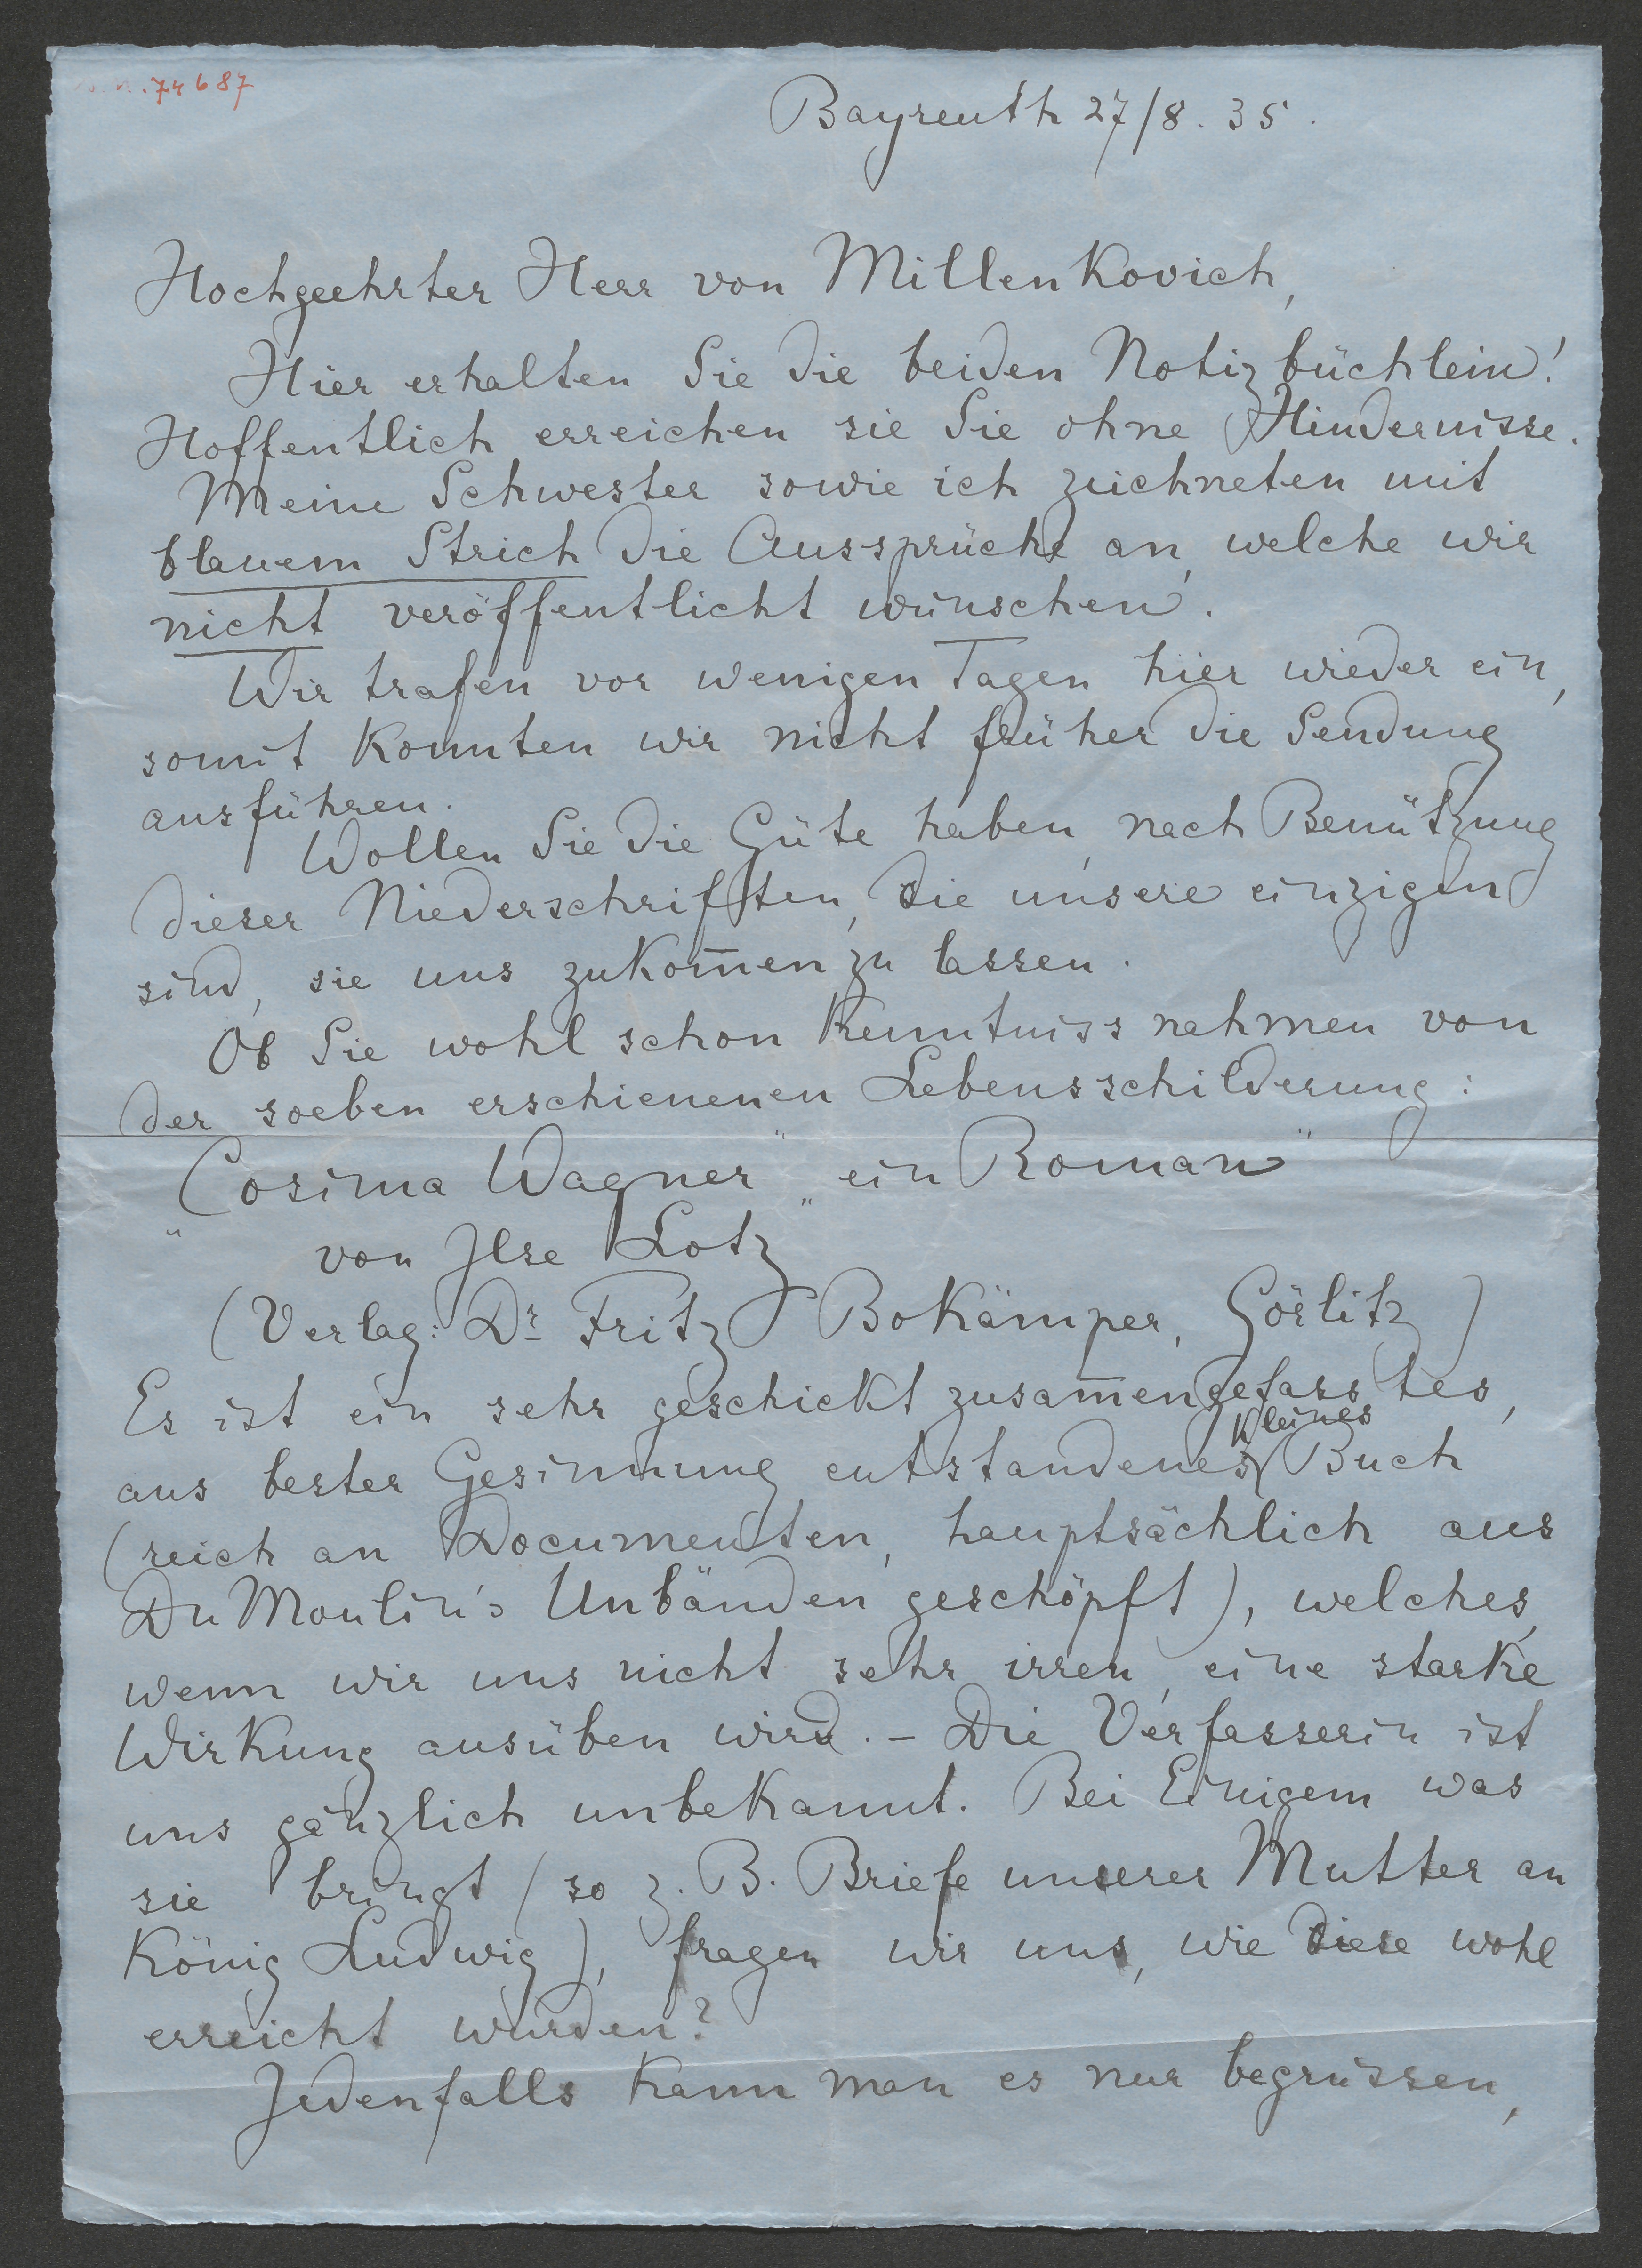 74687
Bayreuth 27/8. 35.
Hochgeehrter Herr von Millenkovich,
Hier erhalten Sie die beiden Notizbüchlein!
Hoffentlich erreichen sie Sie ohne Hindernisse.
Meine Schwester sowie ich zeichneten mit
blauem Strich die Aussprüche an, welche wir
nicht veröffentlicht wünschen.
Wir trafen vor wenigen Tagen hier wieder ein,
somit konnten wir nicht früher die Sendung
ausführen.
Wollen Sie die Güte haben, nach Benützung
dieser Niederschriften, die unsere einzigen
sind, sie uns zukom̅en zu lassen.
Ob Sie wohl schon Kenntniss nahmen von
der soeben erschienenen Lebensschilderung:
„Cosima Wagner" „ein Roman"
von Ilse Lotz
(Verlag: Dr Fritz Bokämper, Görlitz)
Es ist ein sehr geschickt zusam̅engefasstes,
aus bester Gesinnung entstandenes kleines Buch
(reich an Documenten, hauptsächlich aus
Du Moulin's Unbänden geschöpft), welches,
wenn wir uns nicht sehr irren, eine starke
Wirkung ausüben wird. – Die Verfasserin ist
uns gänzlich unbekannt. Bei Einigem was
sie bringt (so z. B. Briefe unserer Mutter an
König Ludwig), fragen wir uns, wie diese wohl
erreicht wurden?
Jedenfalls kann man es nur begrüssen,